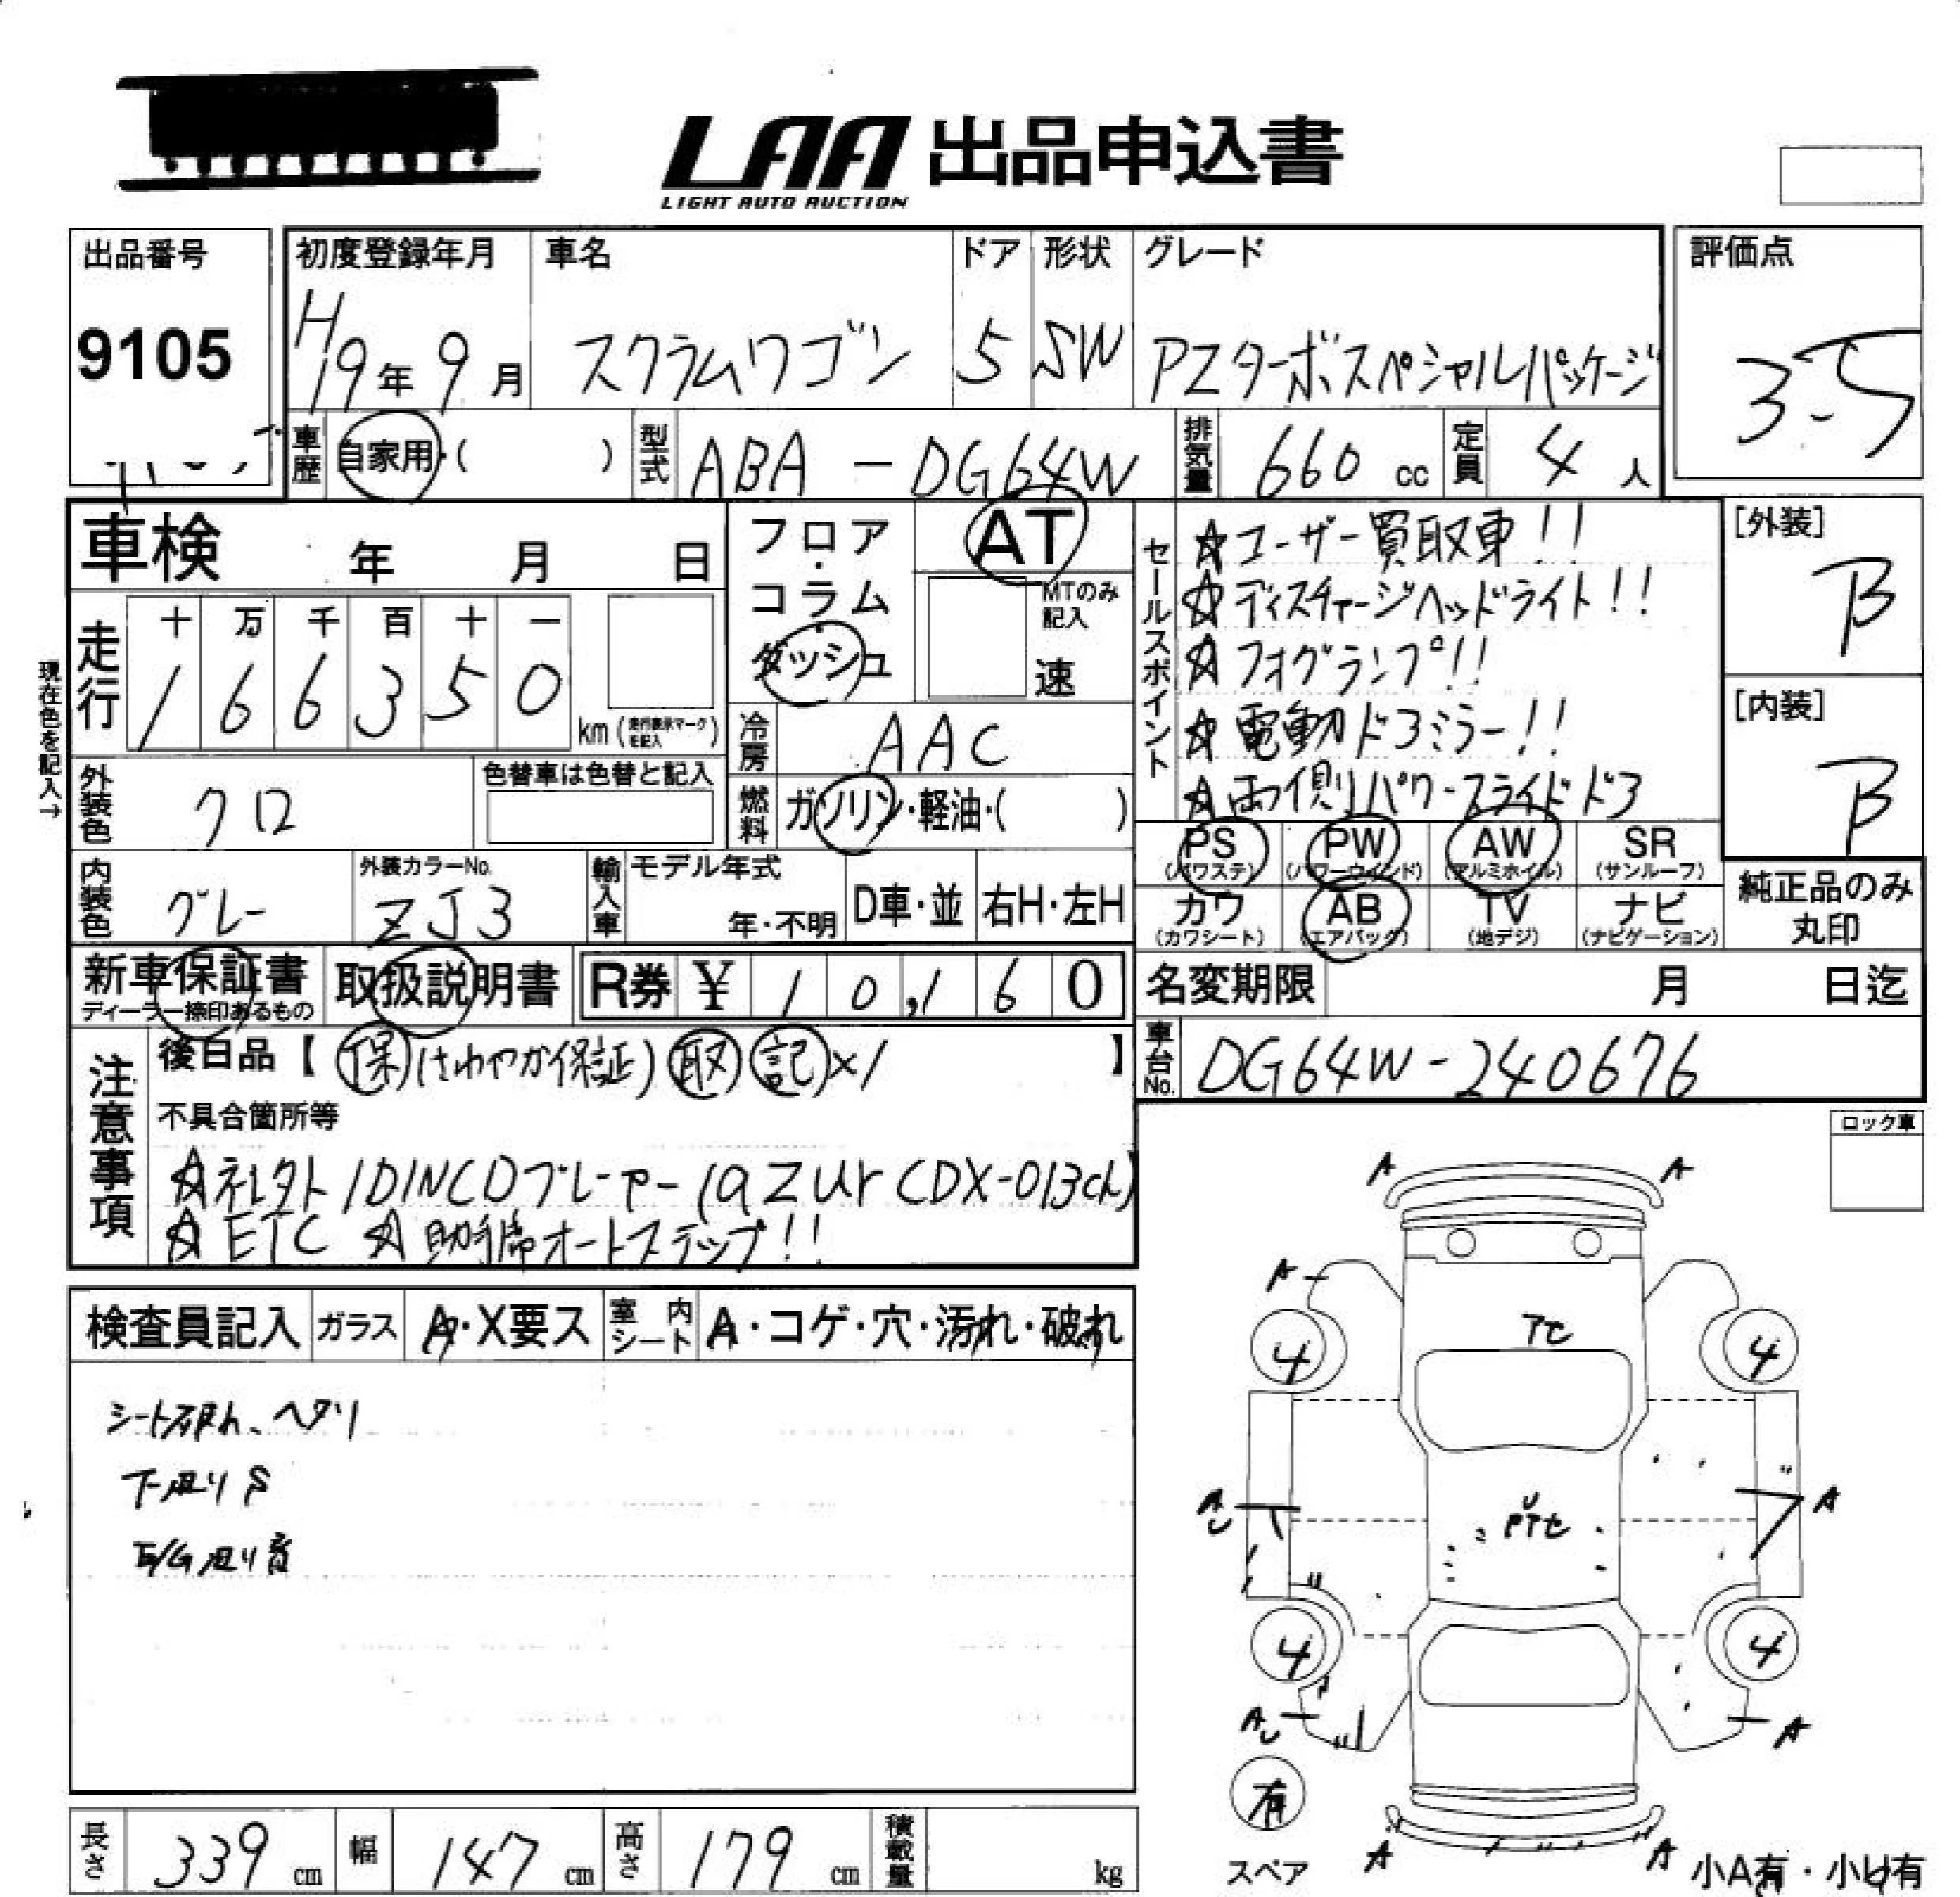 LAA 出品申込書
LIGHT AUTO AUCTION
出品番号
9105
初度登録年月
H19年 9月
車名
スクラムワゴン
ドア
5
形状
SW
グレード
PZターボスペシャルパッケージ
評価点
3.5
車歴 自家用・( )
型式 ABA-DG64W
排気量 660 cc
定員 4 人
車検 年 月 日
フロア・コラム・ダッシュ
AT
MTのみ記入
速
現在色を記入→
走行
十 万 千 百 十 一
1 6 6 3 5 0
km (走行表示マークを記入)
冷房 AAC
燃料 ガソリン・軽油・( )
外装色 クロ
色替車は色替と記入
内装色 グレー
外装カラーNo.
ZJ3
輸入車 モデル年式
年・不明
D車・並
右H・左H
セールスポイント
☆ユーザー買取車!!
☆ディスチャージヘッドライト!!
☆フォグランプ!!
☆電動ドアミラー!!
☆両側パワースライドドア
[外装]
B
[内装]
B
PS (パワステ)
PW (パワーウインド)
AW (アルミホイル)
SR (サンルーフ)
カワ (カワシート)
AB (エアバック)
TV (地デジ)
ナビ (ナビゲーション)
純正品のみ丸印
新車保証書
ディーラー捺印あるもの
取扱説明書
R券 ¥ 10,160
名変期限 月 日迄
車台No. DG64W-240676
注意事項
後日品【 保(さわやか保証) 取 記×1 】
不具合箇所等
☆ネレクト1DINCDプレーヤー(aZur CDX-013ch)
☆ETC ☆助手席オートステップ!!
検査員記入
ガラス A・X要ス
室内シート A・コゲ・穴・汚れ・破れ
シート破れ、ヘタリ
下廻りS
E/G廻り音
ロック車
A A
A
TC
4 4
AU
U
PTC
A
4 4
AU
A
有
スペア
A A
小A有・小U有
長さ 339 cm
幅 147 cm
高さ 179 cm
積載量 kg